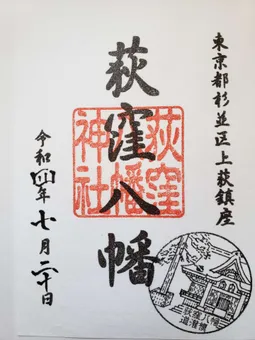 東京都杉並区上荻鎮座
荻窪八幡
荻窪
八幡
神社
令和四年七月二十日
荻窪八幡
道灌槇